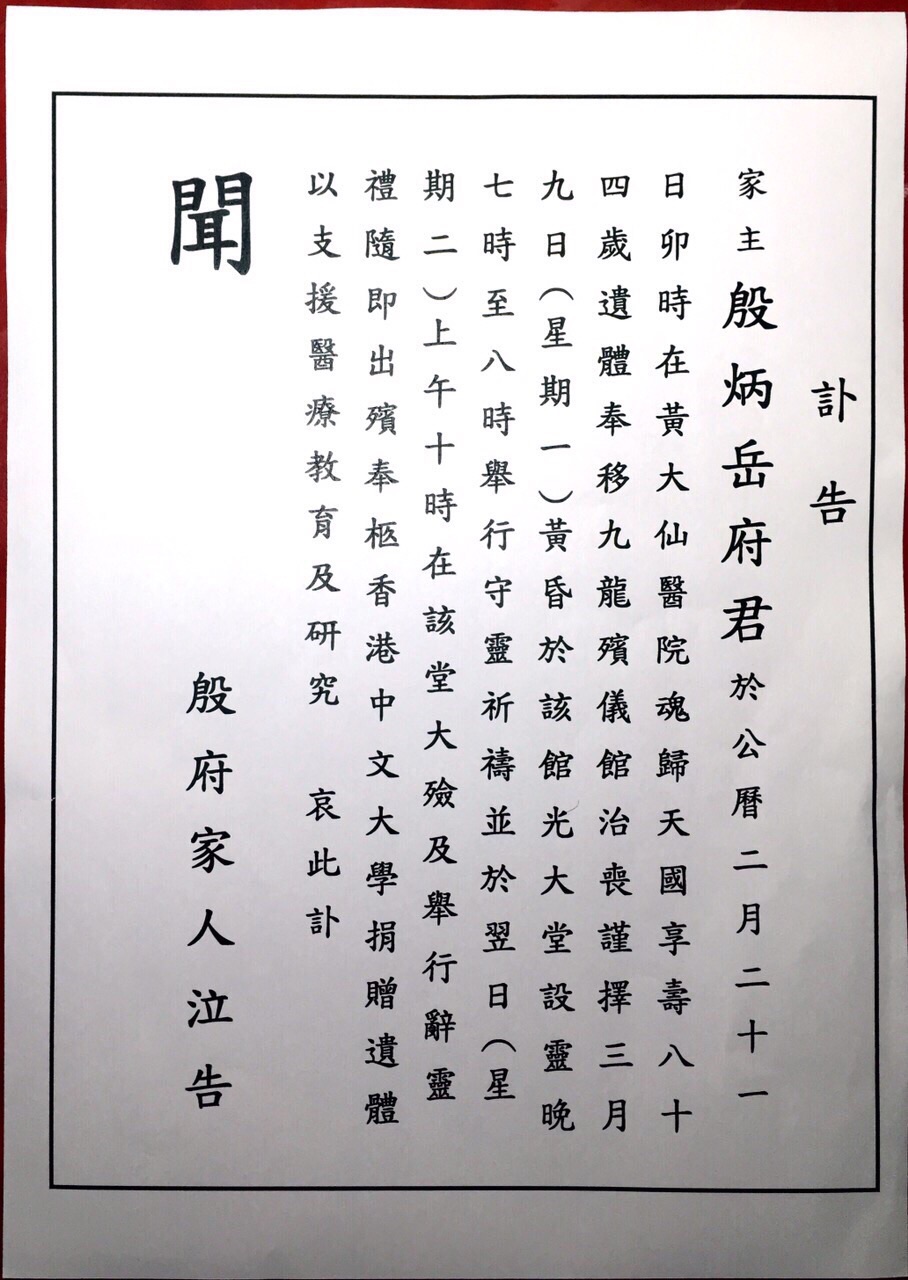 訃告
家主殷炳岳府君於公曆二月二十一
日卯時在黃大仙醫院魂歸天國享壽八十
四歲遺體奉移九龍殯儀館治喪謹擇三月
九日（星期一）黃昏於該館光大堂設靈晚
七時至八時舉行守靈祈禱並於翌日（星
期二）上午十時在該堂大殮及舉行辭靈
禮隨即出殯奉柩香港中文大學捐贈遺體
以支援醫療教育及研究　哀此訃
聞
殷府家人泣告